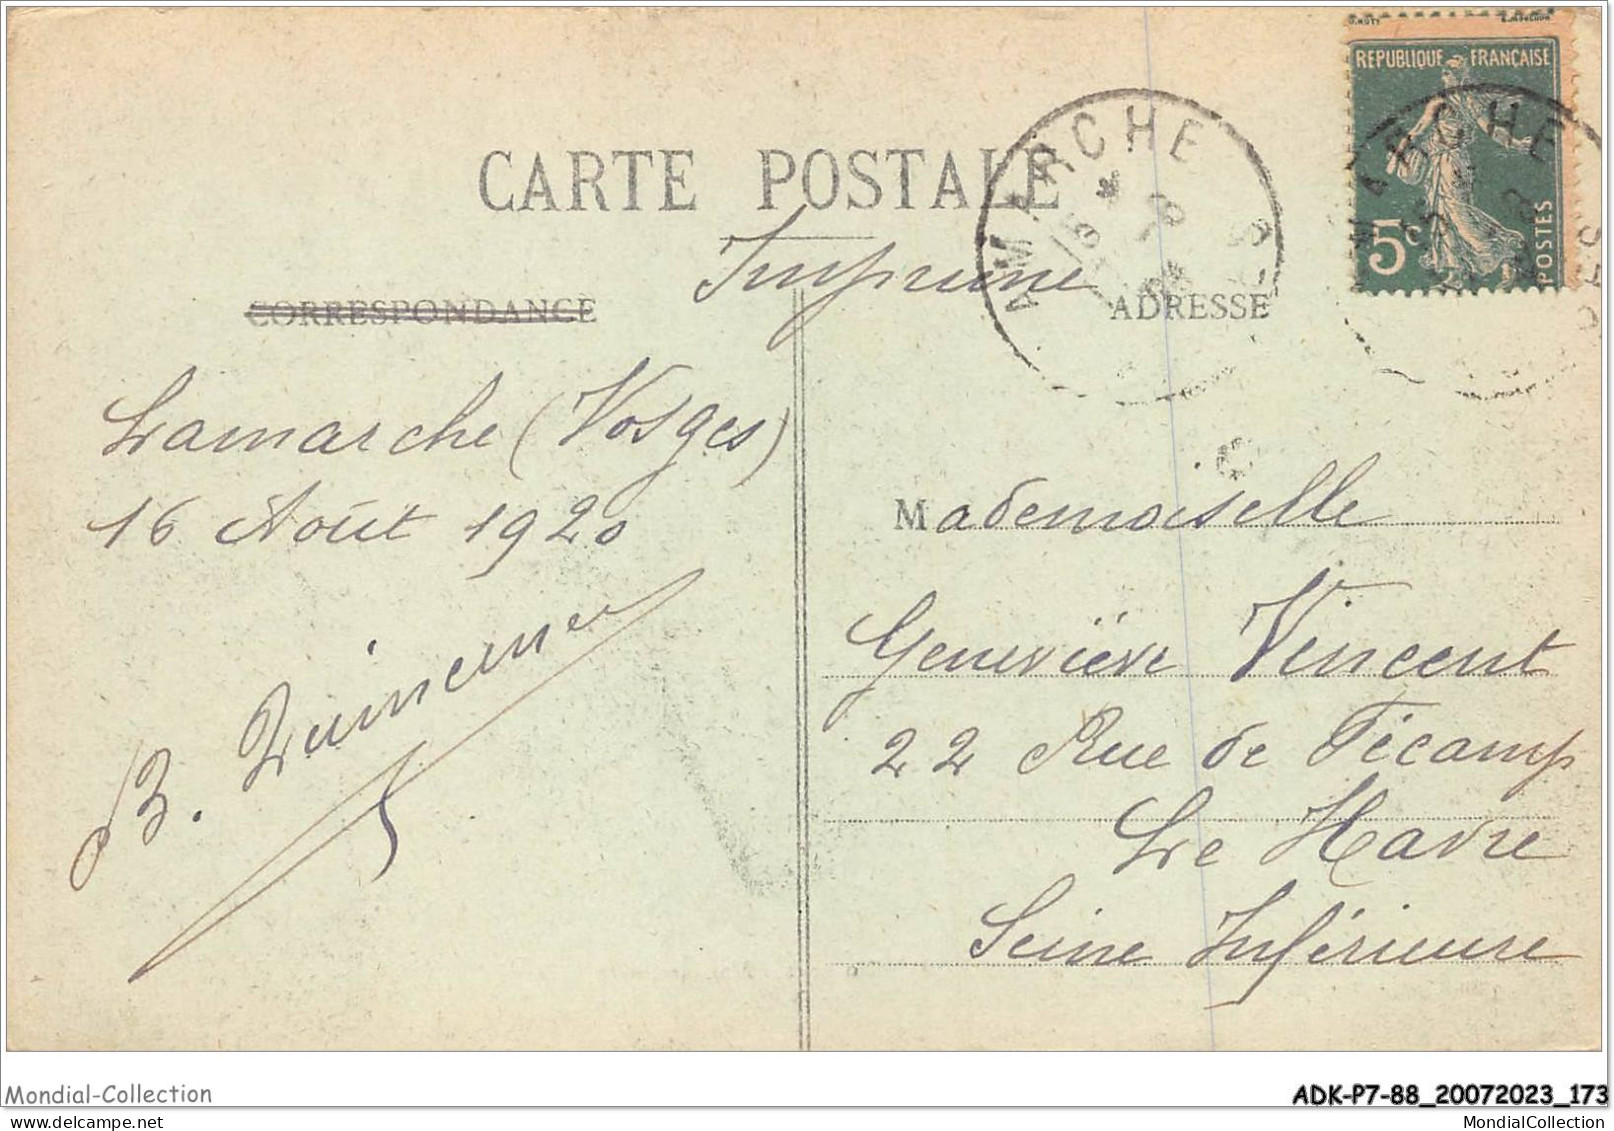 O.ROTY
RÉPUBLIQUE FRANÇAISE
5c
POSTES
CARTE POSTALE
Imprimé
LAMARCHE
CORRESPONDANCE
ADRESSE
Lamarche (Vosges)
16 Août 1920
B.
Mademoiselle
Geneviève Vincent
22 Rue de Fécamp
Le Havre
Seine Inférieure
Mondial-Collection
ADK-P7-88_20072023_173
delcampe.net
MondialCollection